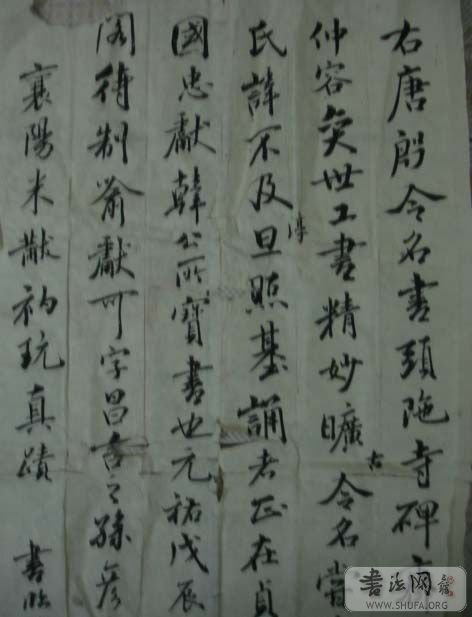 右唐殷令名書頭陁寺碑
仲容奕世工書精妙曠古令名嘗
氏諱不及淳旦照基誦者正在貞
國忠獻韓公所寶書也元祐戊辰
閣待制俞獻可字昌言之孫彥
襄陽米黻祕玩真蹟 書臨
书法网
WWW.SHUFA.ORG